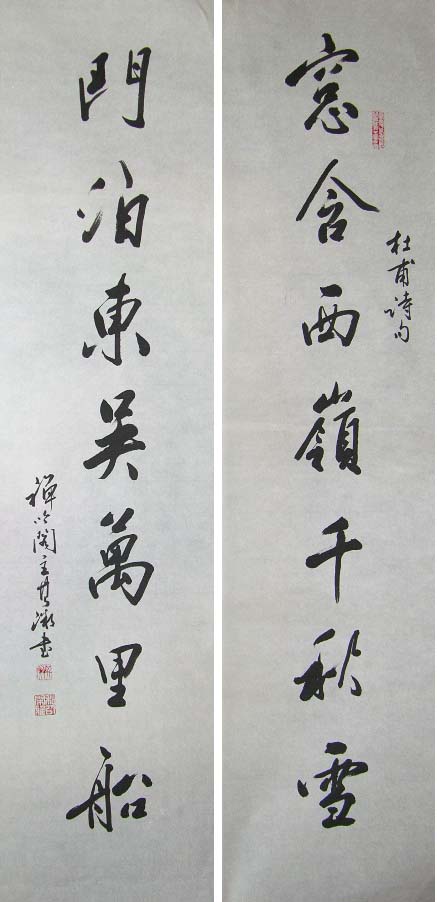 窓含西嶺千秋雪
杜甫詩句
門泊東吳萬里船
禪吟閣主
書